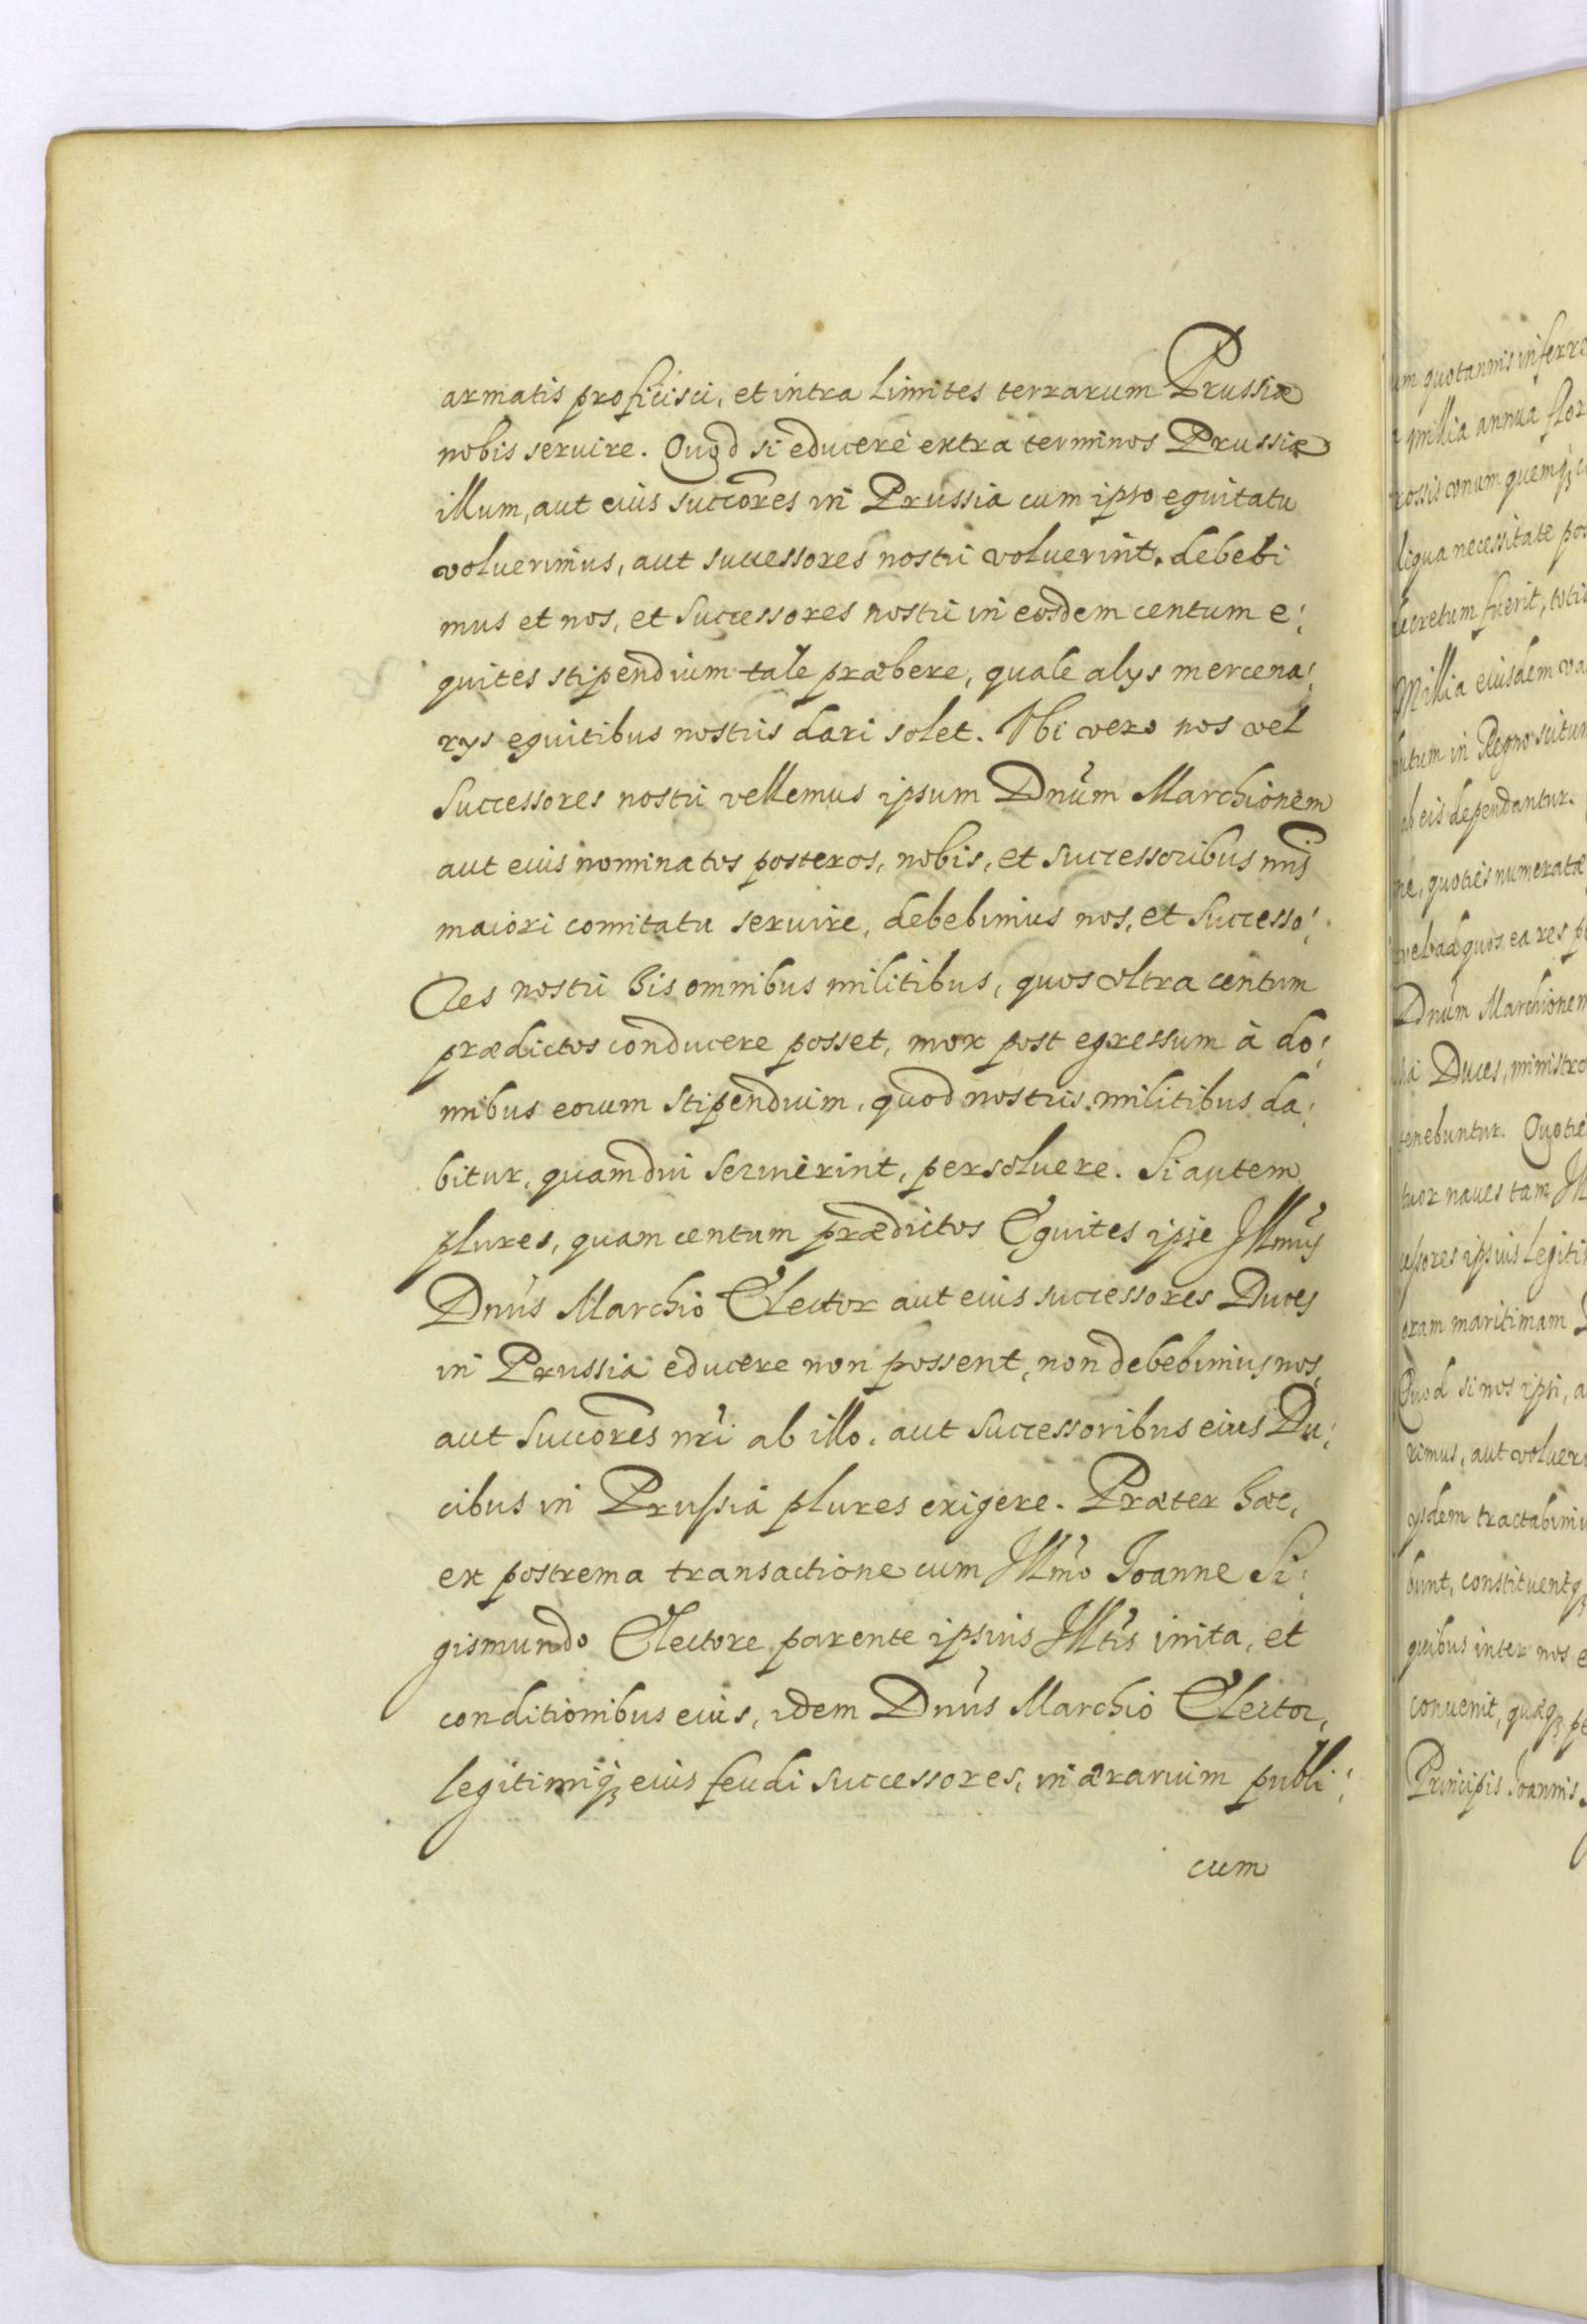 armatis proficisci, et intra limites terrarum Prussiæ
nobis seruire. Quod si educere extra terminos Prussiæ
illum, aut eius succores in Prussia cum ipso equitatu
voluerimus, aut successores nostri voluerint, debebi
mus et nos, et Successores nostri in eosdem centum e:
quites stipendium tale præbere, quale alys mercena:
rys equitibus nostris dari solet. Vbi vero nos vel
Successores nostri vellemus ipsum Dnum Marchionem
aut eius nominatos posteros, nobis, et Successoribus nris
maiori comitatu seruire, debebimus nos, et Successo:
res nostri his omnibus militibus, quos vltra centum
prædictos conducere posset, mox post egressum à do:
mibus eorum stipendium, quod nostris militibus da:
bitur, quamdiu seruierint, persoluere. Si autem
plures, quam centum prædictos Equites ipse Illmus
Dnus Marchio Elector aut eius successores Duces
in Prussia educere non possent, non debebimus nos,
aut Succores nri ab illo, aut Successoribus eius Du:
cibus in Prussia plures exigere. Præter hæc,
ex postrema transactione cum Illmo Joanne Si:
gismundo Electore parente ipsius Illtis inita, et
conditionibus eius, idem Dnus Marchio Elector,
legitimiq3 eius feudi successores, in ærarium publi:
cum
um quotannis inferre
millia annua flor
rossis unum quemq3
liqua necessitate pos
decretum fuerit, toti
Millia eiusdem va
butum in Regno scitum
ab eis dependantur.
ne, quoties numeratæ
vel ad quos ea res p
Dnum Marchionem
Duces, ministro
tenebuntur. Quotie
tuor naues tam Ill
cessores ipsius legiti
oram maritimam
Quod si nos ipsi, a
rimus, aut voluer
ysdem tractabimu
bunt, constituentq3
quibus inter nos e
conuenit, quæq3 pe
Principis Joannis